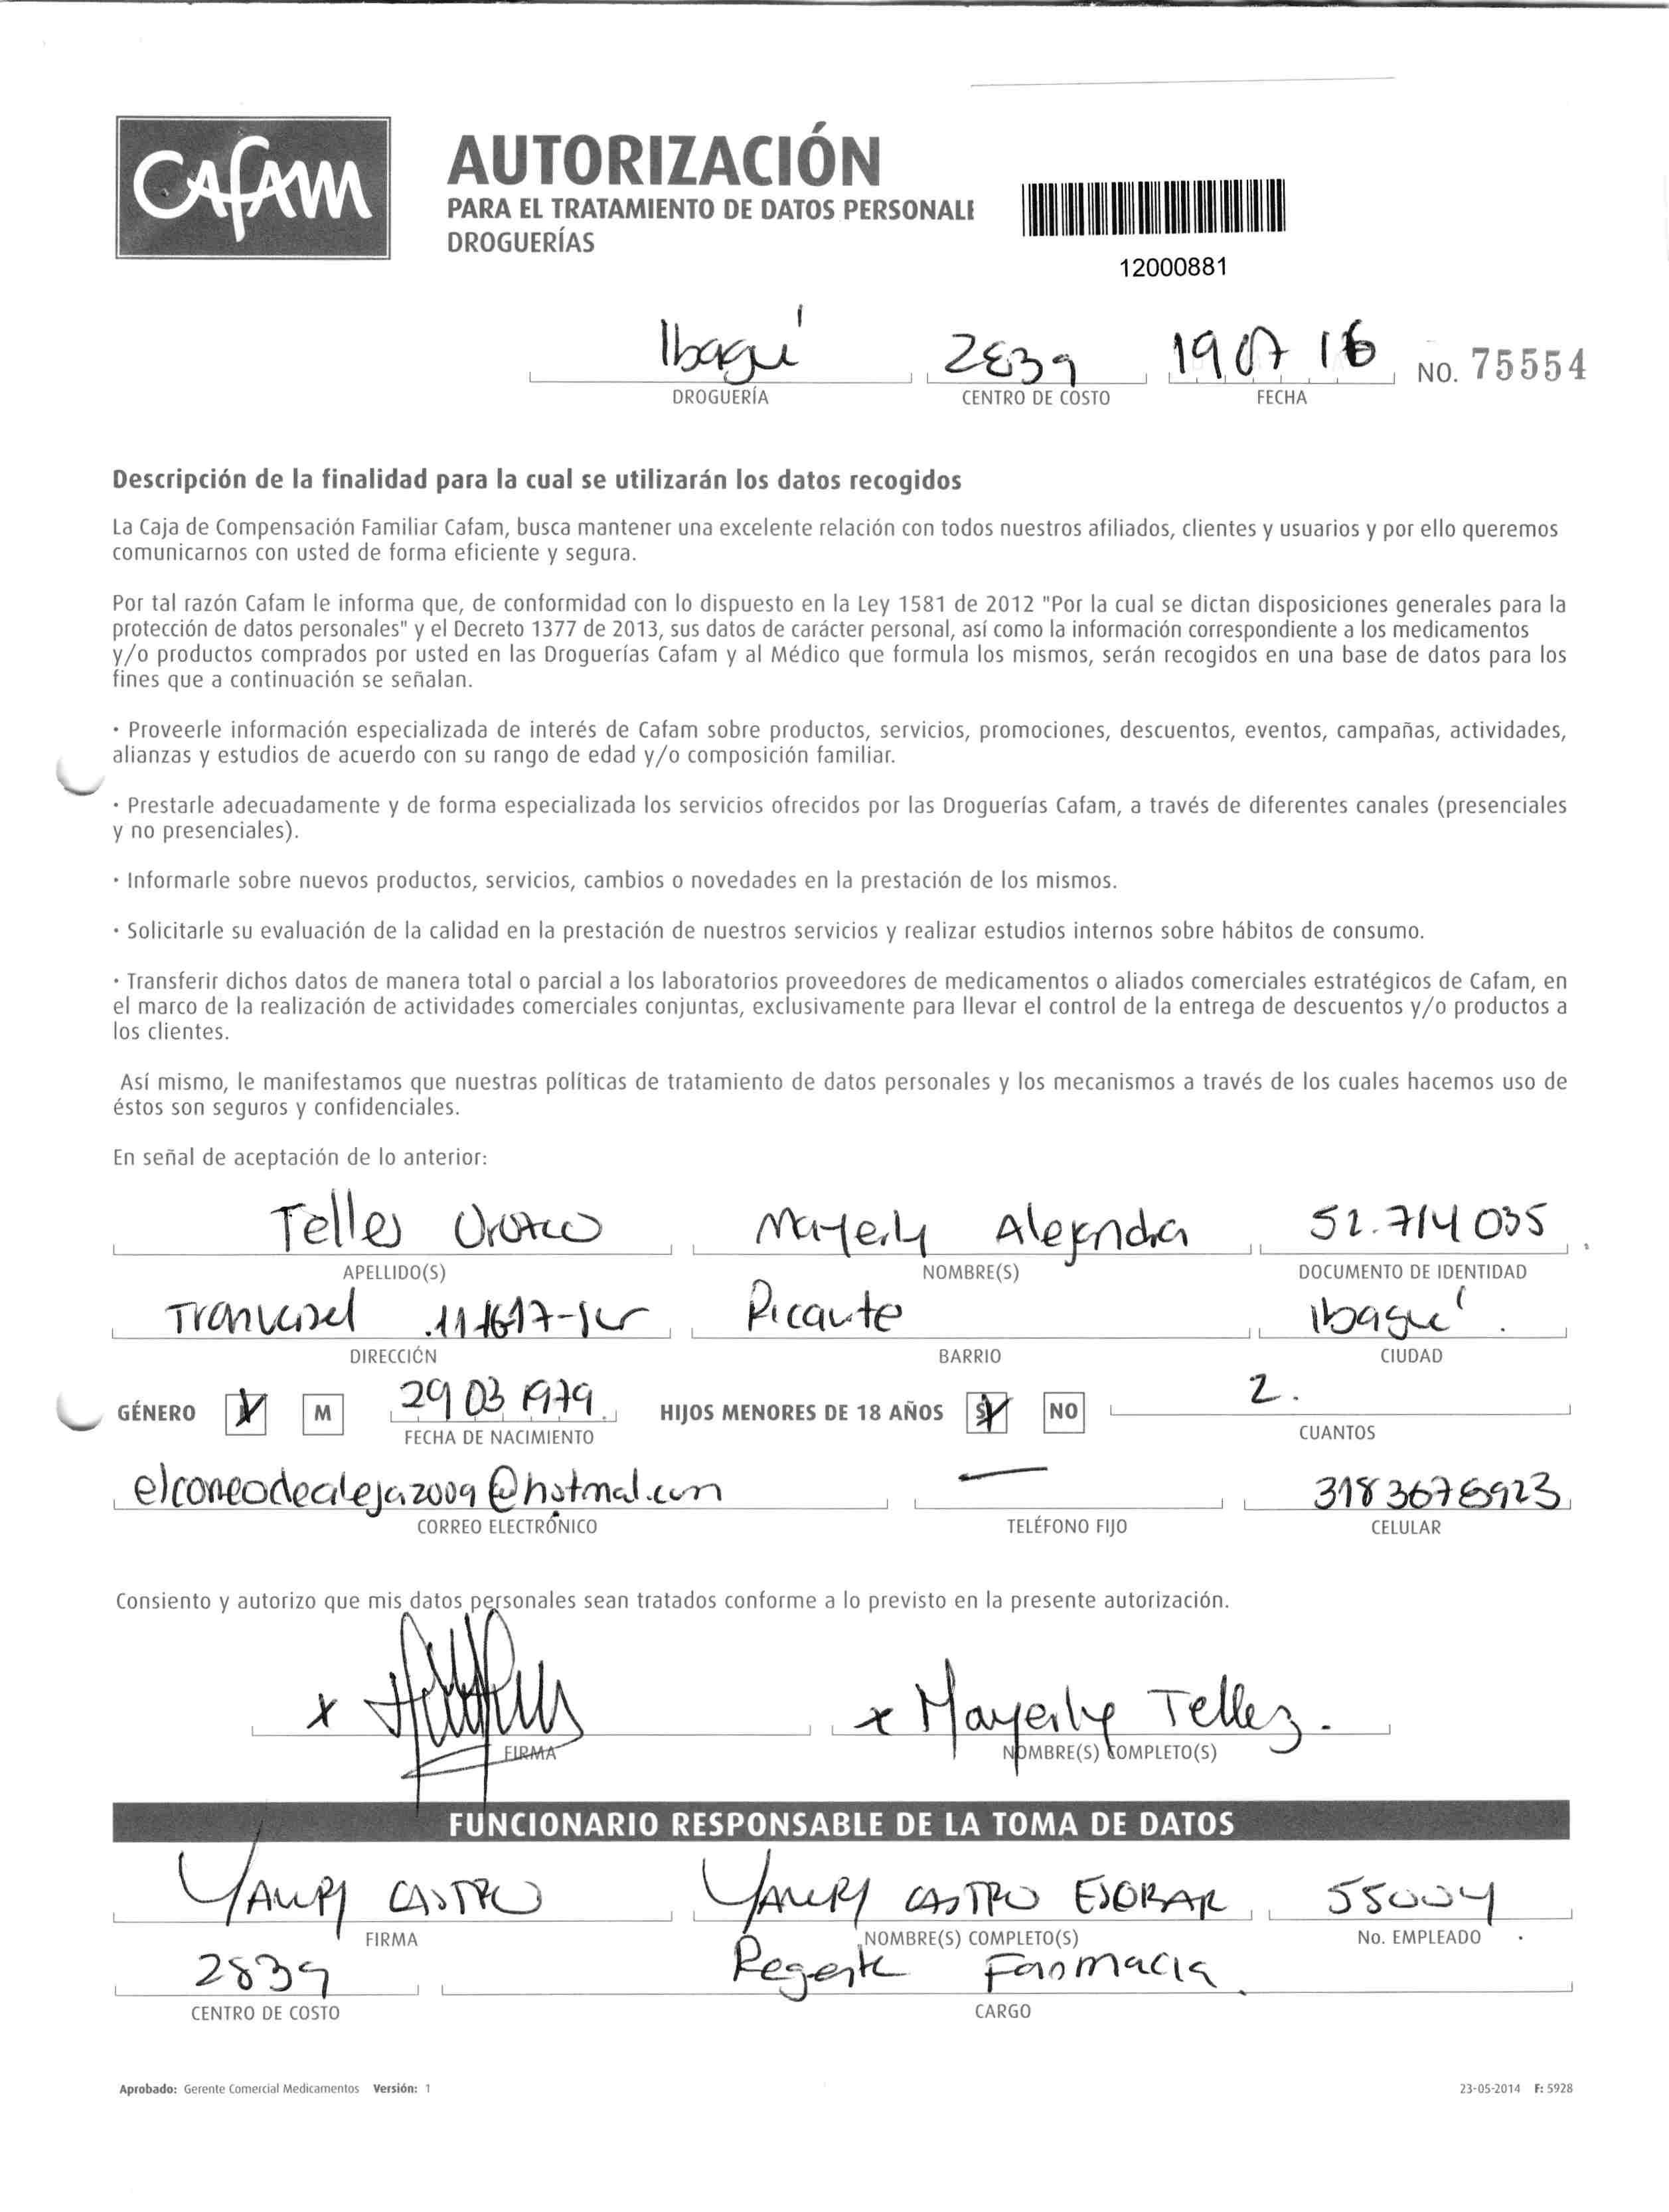 CAFAM
AUTORIZACIÓN
PARA EL TRATAMIENTO DE DATOS PERSONALE
DROGUERÍAS
12000881
Ibagué 2839 19 07 16 NO. 75554
DROGUERÍA CENTRO DE COSTO FECHA
Descripción de la finalidad para la cual se utilizarán los datos recogidos
La Caja de Compensación Familiar Cafam, busca mantener una excelente relación con todos nuestros afiliados, clientes y usuarios y por ello queremos
comunicarnos con usted de forma eficiente y segura.
Por tal razón Cafam le informa que, de conformidad con lo dispuesto en la Ley 1581 de 2012 "Por la cual se dictan disposiciones generales para la
protección de datos personales" y el Decreto 1377 de 2013, sus datos de carácter personal, así como la información correspondiente a los medicamentos
y/o productos comprados por usted en las Droguerías Cafam y al Médico que formula los mismos, serán recogidos en una base de datos para los
fines que a continuación se señalan.
· Proveerle información especializada de interés de Cafam sobre productos, servicios, promociones, descuentos, eventos, campañas, actividades,
alianzas y estudios de acuerdo con su rango de edad y/o composición familiar.
· Prestarle adecuadamente y de forma especializada los servicios ofrecidos por las Droguerías Cafam, a través de diferentes canales (presenciales
y no presenciales).
· Informarle sobre nuevos productos, servicios, cambios o novedades en la prestación de los mismos.
· Solicitarle su evaluación de la calidad en la prestación de nuestros servicios y realizar estudios internos sobre hábitos de consumo.
· Transferir dichos datos de manera total o parcial a los laboratorios proveedores de medicamentos o aliados comerciales estratégicos de Cafam, en
el marco de la realización de actividades comerciales conjuntas, exclusivamente para llevar el control de la entrega de descuentos y/o productos a
los clientes.
Así mismo, le manifestamos que nuestras políticas de tratamiento de datos personales y los mecanismos a través de los cuales hacemos uso de
éstos son seguros y confidenciales.
En señal de aceptación de lo anterior:
Telles Orozco Mayerly Alejandra 52.714 035
APELLIDO(S) NOMBRE(S) DOCUMENTO DE IDENTIDAD
Picaute Ibagué
DIRECCIÓN BARRIO CIUDAD
GÉNERO M 29 03 1979 HIJOS MENORES DE 18 AÑOS SI NO 2.
FECHA DE NACIMIENTO CUANTOS
elcorreodealeja2009@hotmal.com 3183676923
CORREO ELECTRÓNICO TELÉFONO FIJO CELULAR
Consiento y autorizo que mis datos personales sean tratados conforme a lo previsto en la presente autorización.
x x Mayerly Tellez.
FIRMA NOMBRE(S) COMPLETO(S)
FUNCIONARIO RESPONSABLE DE LA TOMA DE DATOS
YAURY CASTRO YAURY CASTRO ESCOBAR 55004
FIRMA NOMBRE(S) COMPLETO(S) No. EMPLEADO
2839 Regente Farmacia
CENTRO DE COSTO CARGO
Aprobado: Gerente Comercial Medicamentos Versión: 1 23-05-2014 F: 5928